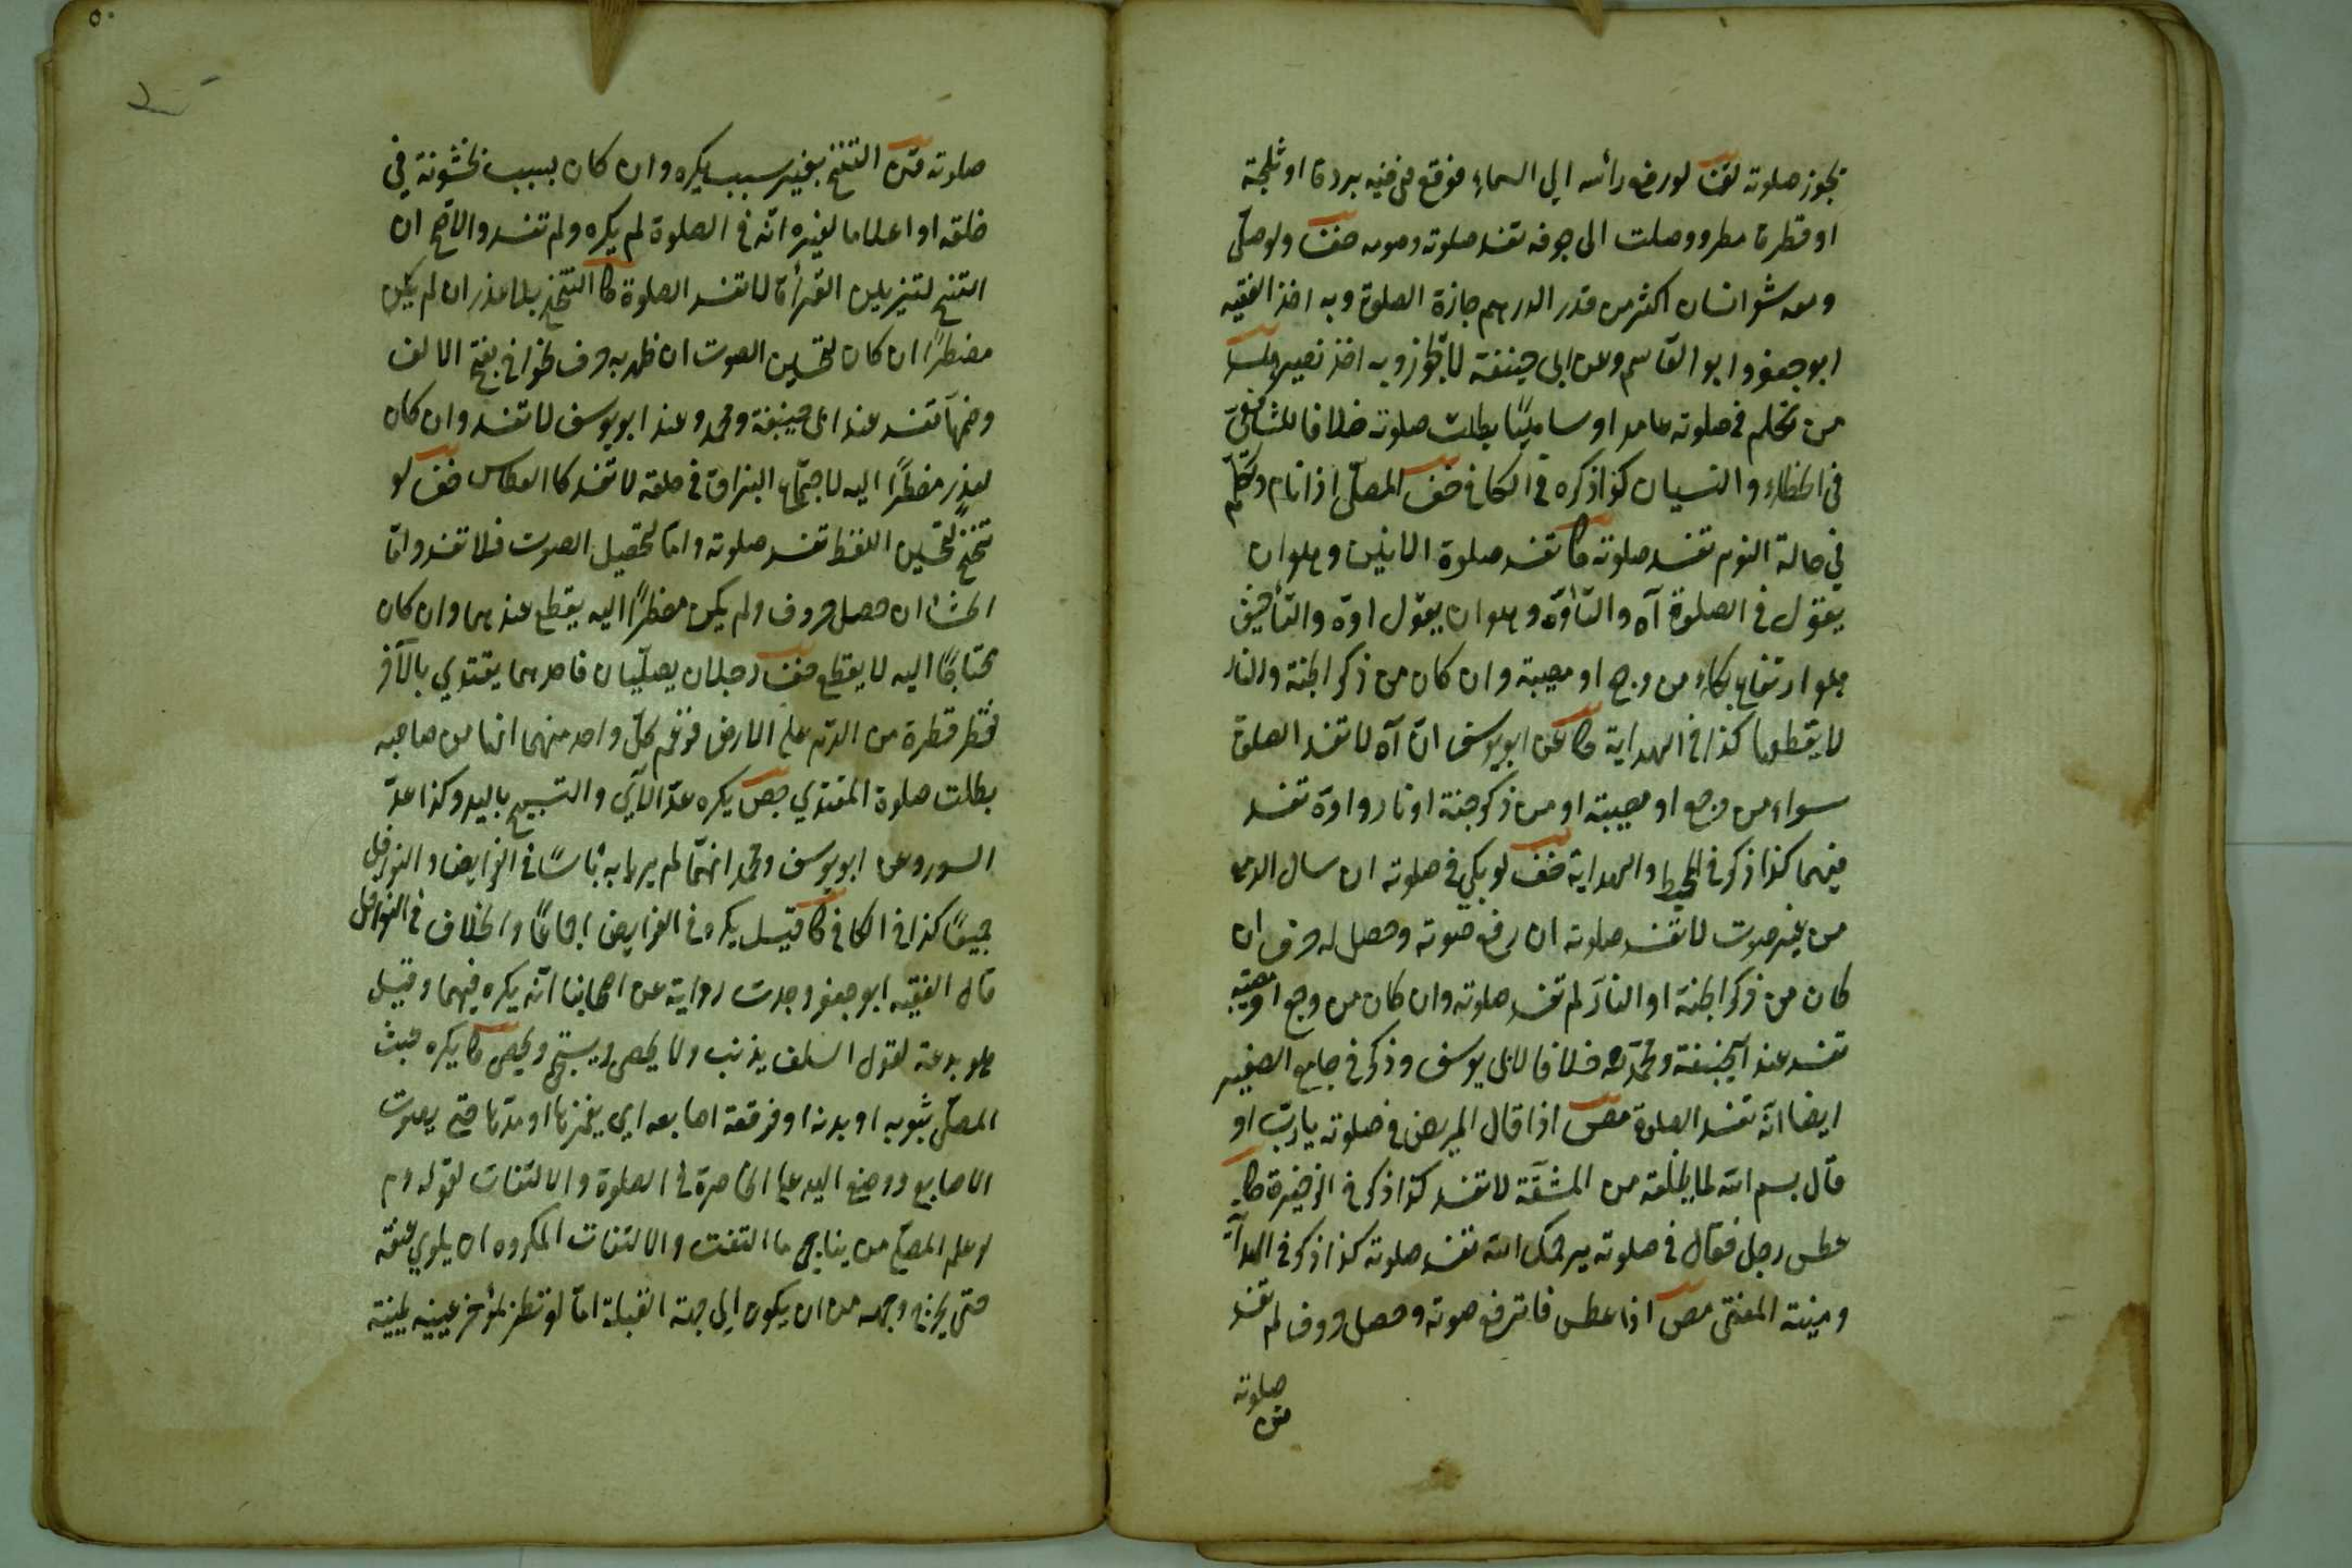 تجوز صلوته لو رفع رأسه الى السماء فوقع فى فيه بردة او ثلجة
او قطرة مطر ووصلت الى جوفه تفسد صلوته وصومه خف ولو صلى
ومعه شعر انسان اكثر من قدر الدرهم جازة الصلوة وبه اخذ الفقيه
ابو جعفر وابو القاسم وعن ابى حنيفة لا تجوز وبه اخذ نصير
من تكلم فى صلوته عامدا او ساهيًا بطلت صلوته خلافا للشافعى
فى الخطاء والنسيان كذا ذكره فى الكافى خف المصلّى اذا نام وتكلّم
فى حالة النوم تفسد صلوته كا تفسد صلوة الانين وهو ان
يقول فى الصلوة آه والتأوّه وهو ان يقول اوه والتأفيف
هو ارتفاع بكاء من وجع او مصيبة وان كان من ذكر الجنة والنار
لا يقطعها كذا فى الهداية كا عن ابو يوسف انّ آه لا تفسد الصلوة
سواء من وجع او مصيبة او من ذكر جنة او نار واوه تفسد
فيهما كذا ذكر فى المحيط والهداية خف لو بكى فى صلوته ان سال الدمع
من غير صوت لا تفسد صلوته ان رفع صوته وحصل له حرف ان
كان من ذكر الجنة او النار لم تفسد صلوته وان كان من وجع او مصيبة
تفسد عند ابيحنيفة ومحمد خلافا لابى يوسف وذكر فى جامع الصغير
ايضا انّه تفسد الصلوة مص اذا قال المريض فى صلوته يا ربّ او
قال بسم الله لما يلحقه من المشقّة لا تفسد كذا ذكر فى الذخيرة كا
عطس رجل فقال فى صلوته يرحمك الله تفسد صلوته كذا ذكر فى الهداية
ومنية المفتى مص اذا عطس فارتفع صوته وحصل حروف لم تفسد
صلوته
صلوته التنحنح بغير سبب يكره وان كان بسبب لخشونة فى
حلقه او اعلاما لغيره انّه فى الصلوة لم يكره ولم تفسد والاصح ان
التنحنح لتزيين القرأة لا تفسد الصلوة كا التنحنح بلا عذر ان لم يكن
مضطرًّا ان كان لتحسين الصوت ان ظهر به حرف نحو اخ بفتح الالف
وضمها تفسد عند ابى حنيفة ومحمد وعند ابو يوسف لا تفسد وان كان
لعذر مضطرًا اليه لاجتماع البزاق فى حلقه لا تفسد كا العطاس خف لو
تنحنح لتحسين اللفظ تفسد صلوته وامّا لتحصيل الصوت فلا تفسد وامّا
الجشأ ان حصل حروف ولم يكن مضطرًا اليه يقطع عندهما وان كان
محتاجًا اليه لا يقطع خف رجلان يصلّيان فاحدهما يقتدي بالآخر
فقطر قطرة من الدّم على الارض فزعم كلّ واحد منهما انها من صاحبه
بطلت صلوة المقتدي مص يكره عدّ الآي والتسبيح باليد وكذا عدّ
السور وعن ابو يوسف ومحمد انهما لم يريا به بأسًا فى الفرايض والنوافل
جميعًا كذا فى الكافى كا قيل يكره فى الفرايض اجماعًا والخلاف فى النوافل
قال الفقيه ابو جعفر وجدت رواية عن اصحابنا انّه يكره فيهما وقيل
هو بدعة لقول السلف يذنب ولا يحصى ويسبّح ويحصى كا يكره عبث
المصلّى بثوبه او بدنه او فرقعة اصابعه اى يغمزها او مدّها حتى يصوت
الاصابع ووضع اليد على الخاصرة فى الصلوة والالتفات لقوله عم
لو علم المصلّى من يناجى ما التفت والالتفات المكروه ان يلوي عنقه
حتى يخرج وجهه من ان يكون الى جهة القبلة امّا لو نظر بمؤخر عينيه يمينه